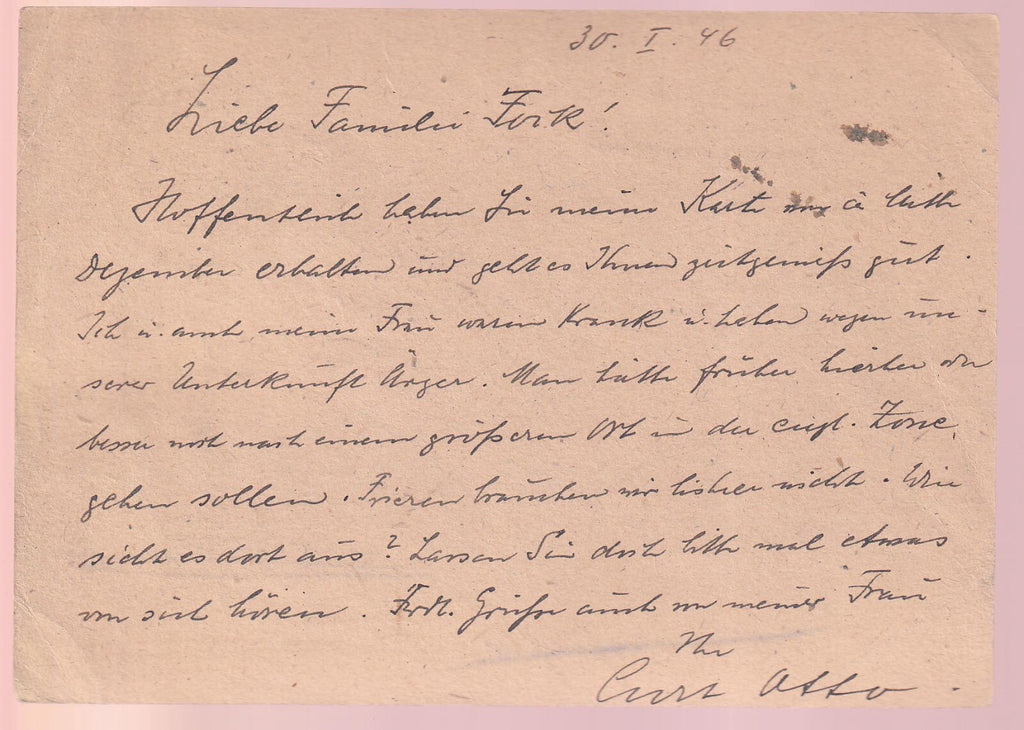 30. I. 46
Liebe Familie Fork!
Hoffentlich haben Sie meine Karte von ca Mitte
Dezember erhalten und geht es Ihnen zeitgemäß gut.
Ich u. auch meine Frau waren krank u. haben wegen un-
serer Unterkunft Ärger. Man hätte früher hierher oder
besser noch nach einem größeren Ort in der engl. Zone
gehen sollen. Frieren brauchen wir bisher nicht. Wie
sieht es dort aus? Lassen Sie doch bitte mal etwas
von sich hören. Frdl. Grüße auch von meiner Frau
Ihr
Curt Otto.